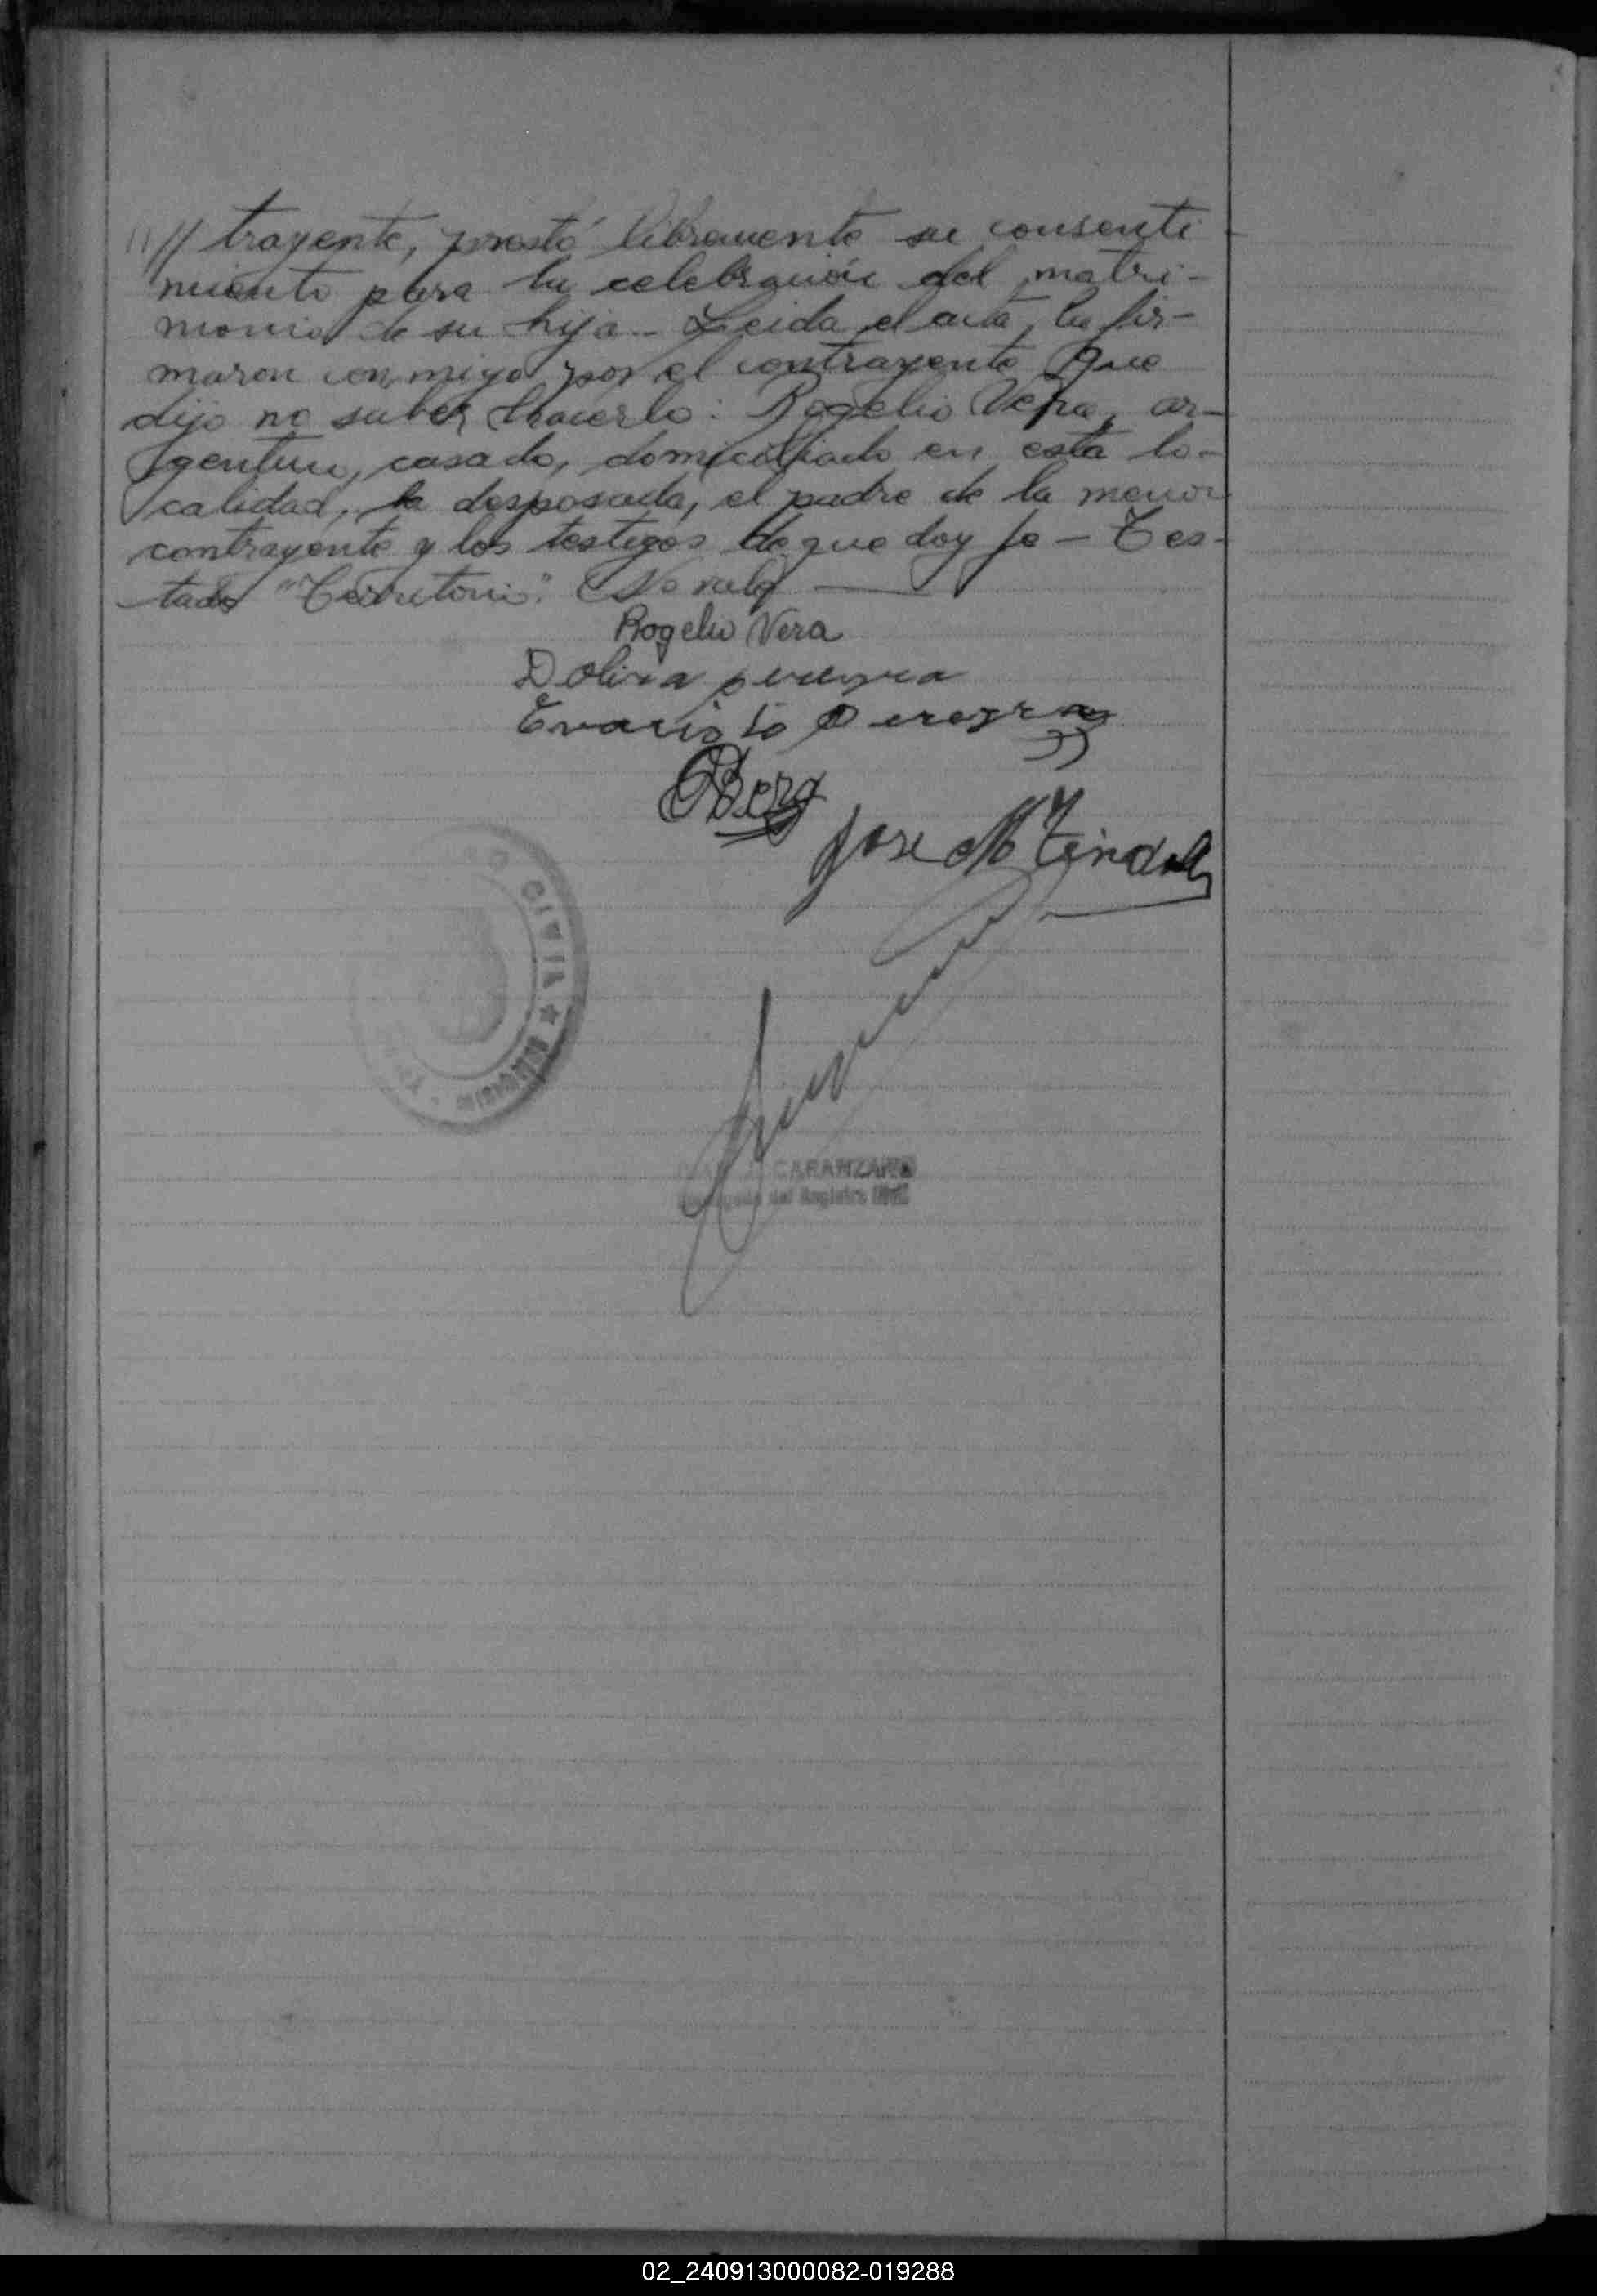 // trayente, prestó libremente su consenti
miento para la celebración del matri-
monio de su hija - Leida el acta, la fir-
maron conmigo por el contrayente que
dijo no saber hacerlo: Rogelio Vera, ar-
gentino, casado, domiciliado en esta lo-
calidad, la desposada, el padre de la menor
contrayente y los testigos de que doy fe - Tes-
tado "Territorio". No vale
Rogelio Vera
Dolira pereyra
Evaristo Pereyra
Berg
Jose M
CIVIL ★ MISIONES
CARANZA
del Registro Civil
02_240913000082-019288